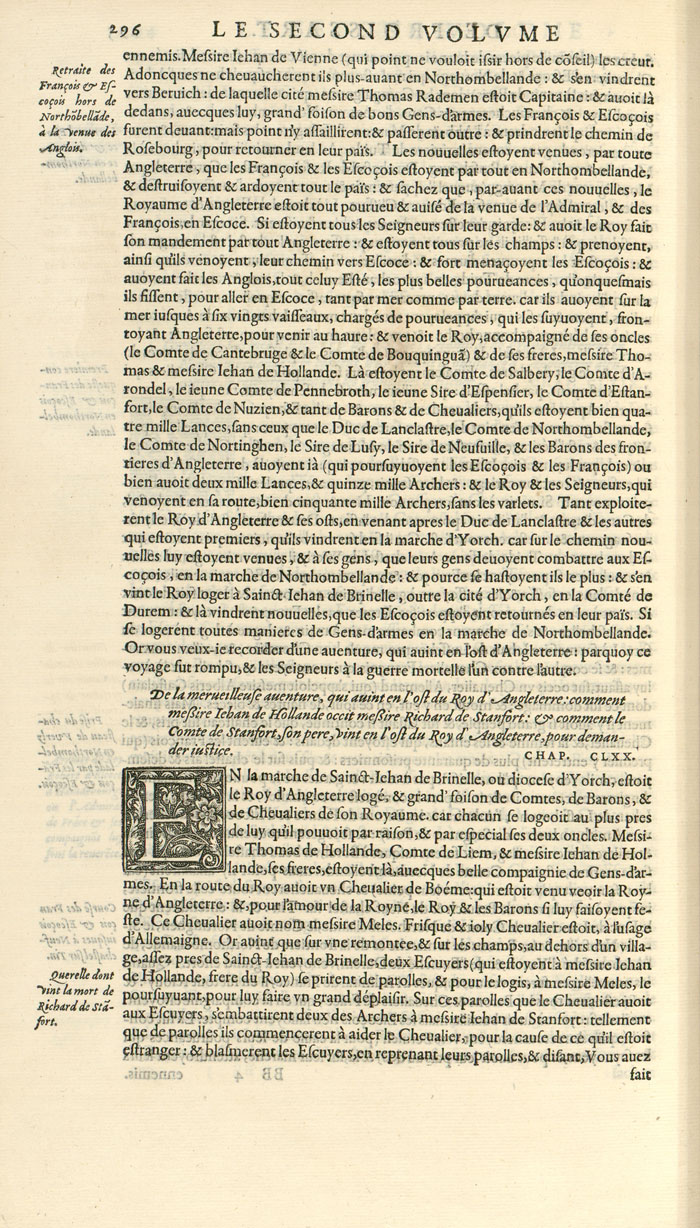 296 LE SECOND VOLVME
Retraite des
François & Eſ-
coçois hors de
Northõbellãde,
à la venue des
Anglois.
ennemis. Meſsire Iehan de Vienne (qui point ne vouloit iſsir hors de cõſeil) les creut.
Adoncques ne cheuaucherent ils plus-auant en Northombellande : & s'en vindrent
vers Beruich : de laquelle cité meſsire Thomas Rademen eſtoit Capitaine : & auoit là
dedans, auecques luy, grand' foiſon de bons Gens-d'armes. Les François & Eſcoçois
furent deuant: mais point n'y aſſaillirent: & paſſerent outre : & prindrent le chemin de
Roſebourg, pour retourner en leur païs. Les nouuelles eſtoyent venues, par toute
Angleterre, que les François & les Eſcoçois eſtoyent par tout en Northombellande,
& deſtruiſoyent & ardoyent tout le païs : & ſachez que, par-auant ces nouuelles, le
Royaume d'Angleterre eſtoit tout pourueu & auiſé de la venue de l'Admiral, & des
François, en Escoce. Si eſtoyent tous les Seigneurs ſur leur garde: & auoit le Roy fait
ſon mandement par tout Angleterre : & eſtoyent tous ſur les champs : & prenoyent,
ainſi qu'ils venoyent, leur chemin vers Eſcoce : & fort menaçoyent les Eſcoçois : &
auoyent fait les Anglois, tout celuy Eſté, les plus belles pourueances, qu'onqueſmais
ils fiſſent, pour aller en Eſcoce, tant par mer comme par terre. car ils auoyent ſur la
mer iuſques à ſix vingts vaiſſeaux, chargés de pourueances, qui les ſuyuoyent, fron-
toyant Angleterre, pour venir au haure: & venoit le Roy, accompaigné de ſes oncles
(le Comte de Cantebruge & le Comte de Bouquinguã) & de ſes freres, meſsire Tho-
mas & meſsire Iehan de Hollande. Là eſtoyent le Comte de Salbery, le Comte d'A-
rondel, le ieune Comte de Pennebroth, le ieune Sire d'Eſpenſier, le Comte d'Eſtan-
fort, le Comte de Nuzien, & tant de Barons & de Cheualiers, qu'ils eſtoyent bien qua-
tre mille Lances, ſans ceux que le Duc de Lanclaſtre, le Comte de Northombellande,
le Comte de Nortinghen, le Sire de Luſy, le Sire de Neufuille, & les Barons des fron-
tieres d'Angleterre, auoyent ià (qui pourſuyuoyent les Eſcoçois & les François) ou
bien auoit deux mille Lances, & quinze mille Archers : & le Roy & les Seigneurs, qui
venoyent en ſa route, bien cinquante mille Archers, ſans les varlets. Tant exploite-
rent le Roy d'Angleterre & ſes oſts, en venant apres le Duc de Lanclaſtre & les autres
qui eſtoyent premiers, qu'ils vindrent en la marche d'Yorch. car ſur le chemin nou-
uelles luy eſtoyent venues, & à ſes gens, que leurs gens deuoyent combattre aux Eſ-
coçois, en la marche de Northombellande : & pource ſe haſtoyent ils le plus : & s'en
vint le Roy loger à Sainct-Iehan de Brinelle, outre la cité d'Yorch, en la Comté de
Durem : & là vindrent nouuelles, que les Eſcoçois eſtoyent retournés en leur païs. Si
ſe logerent toutes manieres de Gens-d'armes en la marche de Northombellande.
Or vous veux-ie recorder d'une auenture, qui auint en l'oſt d'Angleterre : parquoy ce
voyage fut rompu, & les Seigneurs à la guerre mortelle l'un contre l'autre.
De la merueilleuſe auenture, qui auint en l'oſt du Roy d'Angleterre: comment
meſsire Iehan de Hollande occit meſsire Richard de Stanfort: & comment le
Comte de Stanfort, ſon pere, vint en l'oſt du Roy d'Angleterre, pour deman-
der iuſtice. CHAP. CLXX.
EN la marche de Sainct-Iehan de Brinelle, ou dioceſe d'Yorch, eſtoit
le Roy d'Angleterre logé, & grand' foiſon de Comtes, de Barons, &
de Cheualiers de ſon Royaume. car chacun ſe logeoit au plus pres
de luy qu'il pouuoit par raiſon, & par eſpecial ſes deux oncles. Meſsi-
re Thomas de Hollande, Comte de Liem, & meſsire Iehan de Hol-
lande, ſes freres, eſtoyent là, auecques belle compaignie de Gens-d'ar-
mes. En la route du Roy auoit vn Cheualier de Boéme: qui eſtoit venu veoir la Roy-
ne d'Angleterre : &, pour l'amour de la Royne, le Roy & les Barons ſi luy faiſoyent fe-
ſte. Ce Cheualier auoit nom meſsire Meles. Friſque & ioly Cheualier eſtoit, à l'uſage
d'Allemaigne. Or auint que ſur vne remontee, & ſur les champs, au dehors d'un villa-
ge, aſſez pres de Sainct-Iehan de Brinelle, deux Eſcuyers (qui eſtoyent à meſsire Iehan
de Hollande, frere du Roy) ſe prirent de parolles, & pour le logis, à meſsire Meles, le
pourſuyuant, pour luy faire vn grand déplaiſir. Sur ces parolles que le Cheualier auoit
aux Eſcuyers, s'embattirent deux des Archers à meſsire Iehan de Stanfort : tellement
que de parolles ils commencerent à aider le Cheualier, pour la cauſe de ce qu'il eſtoit
eſtranger : & blaſmerent les Eſcuyers, en reprenant leurs parolles, & diſant, Vous auez
Querelle dont
vint la mort de
Richard de Stã-
fort.
fait